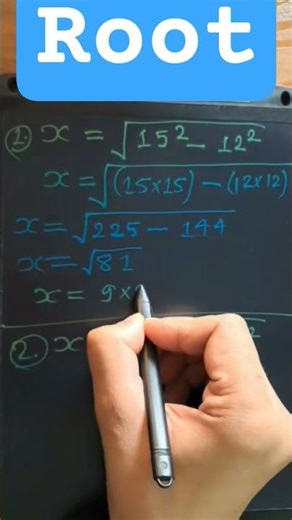 Root
1. x = √15² - 12²
x = √(15×15) - (12×12)
x = √225 - 144
x = √81
x = 9×
2. x